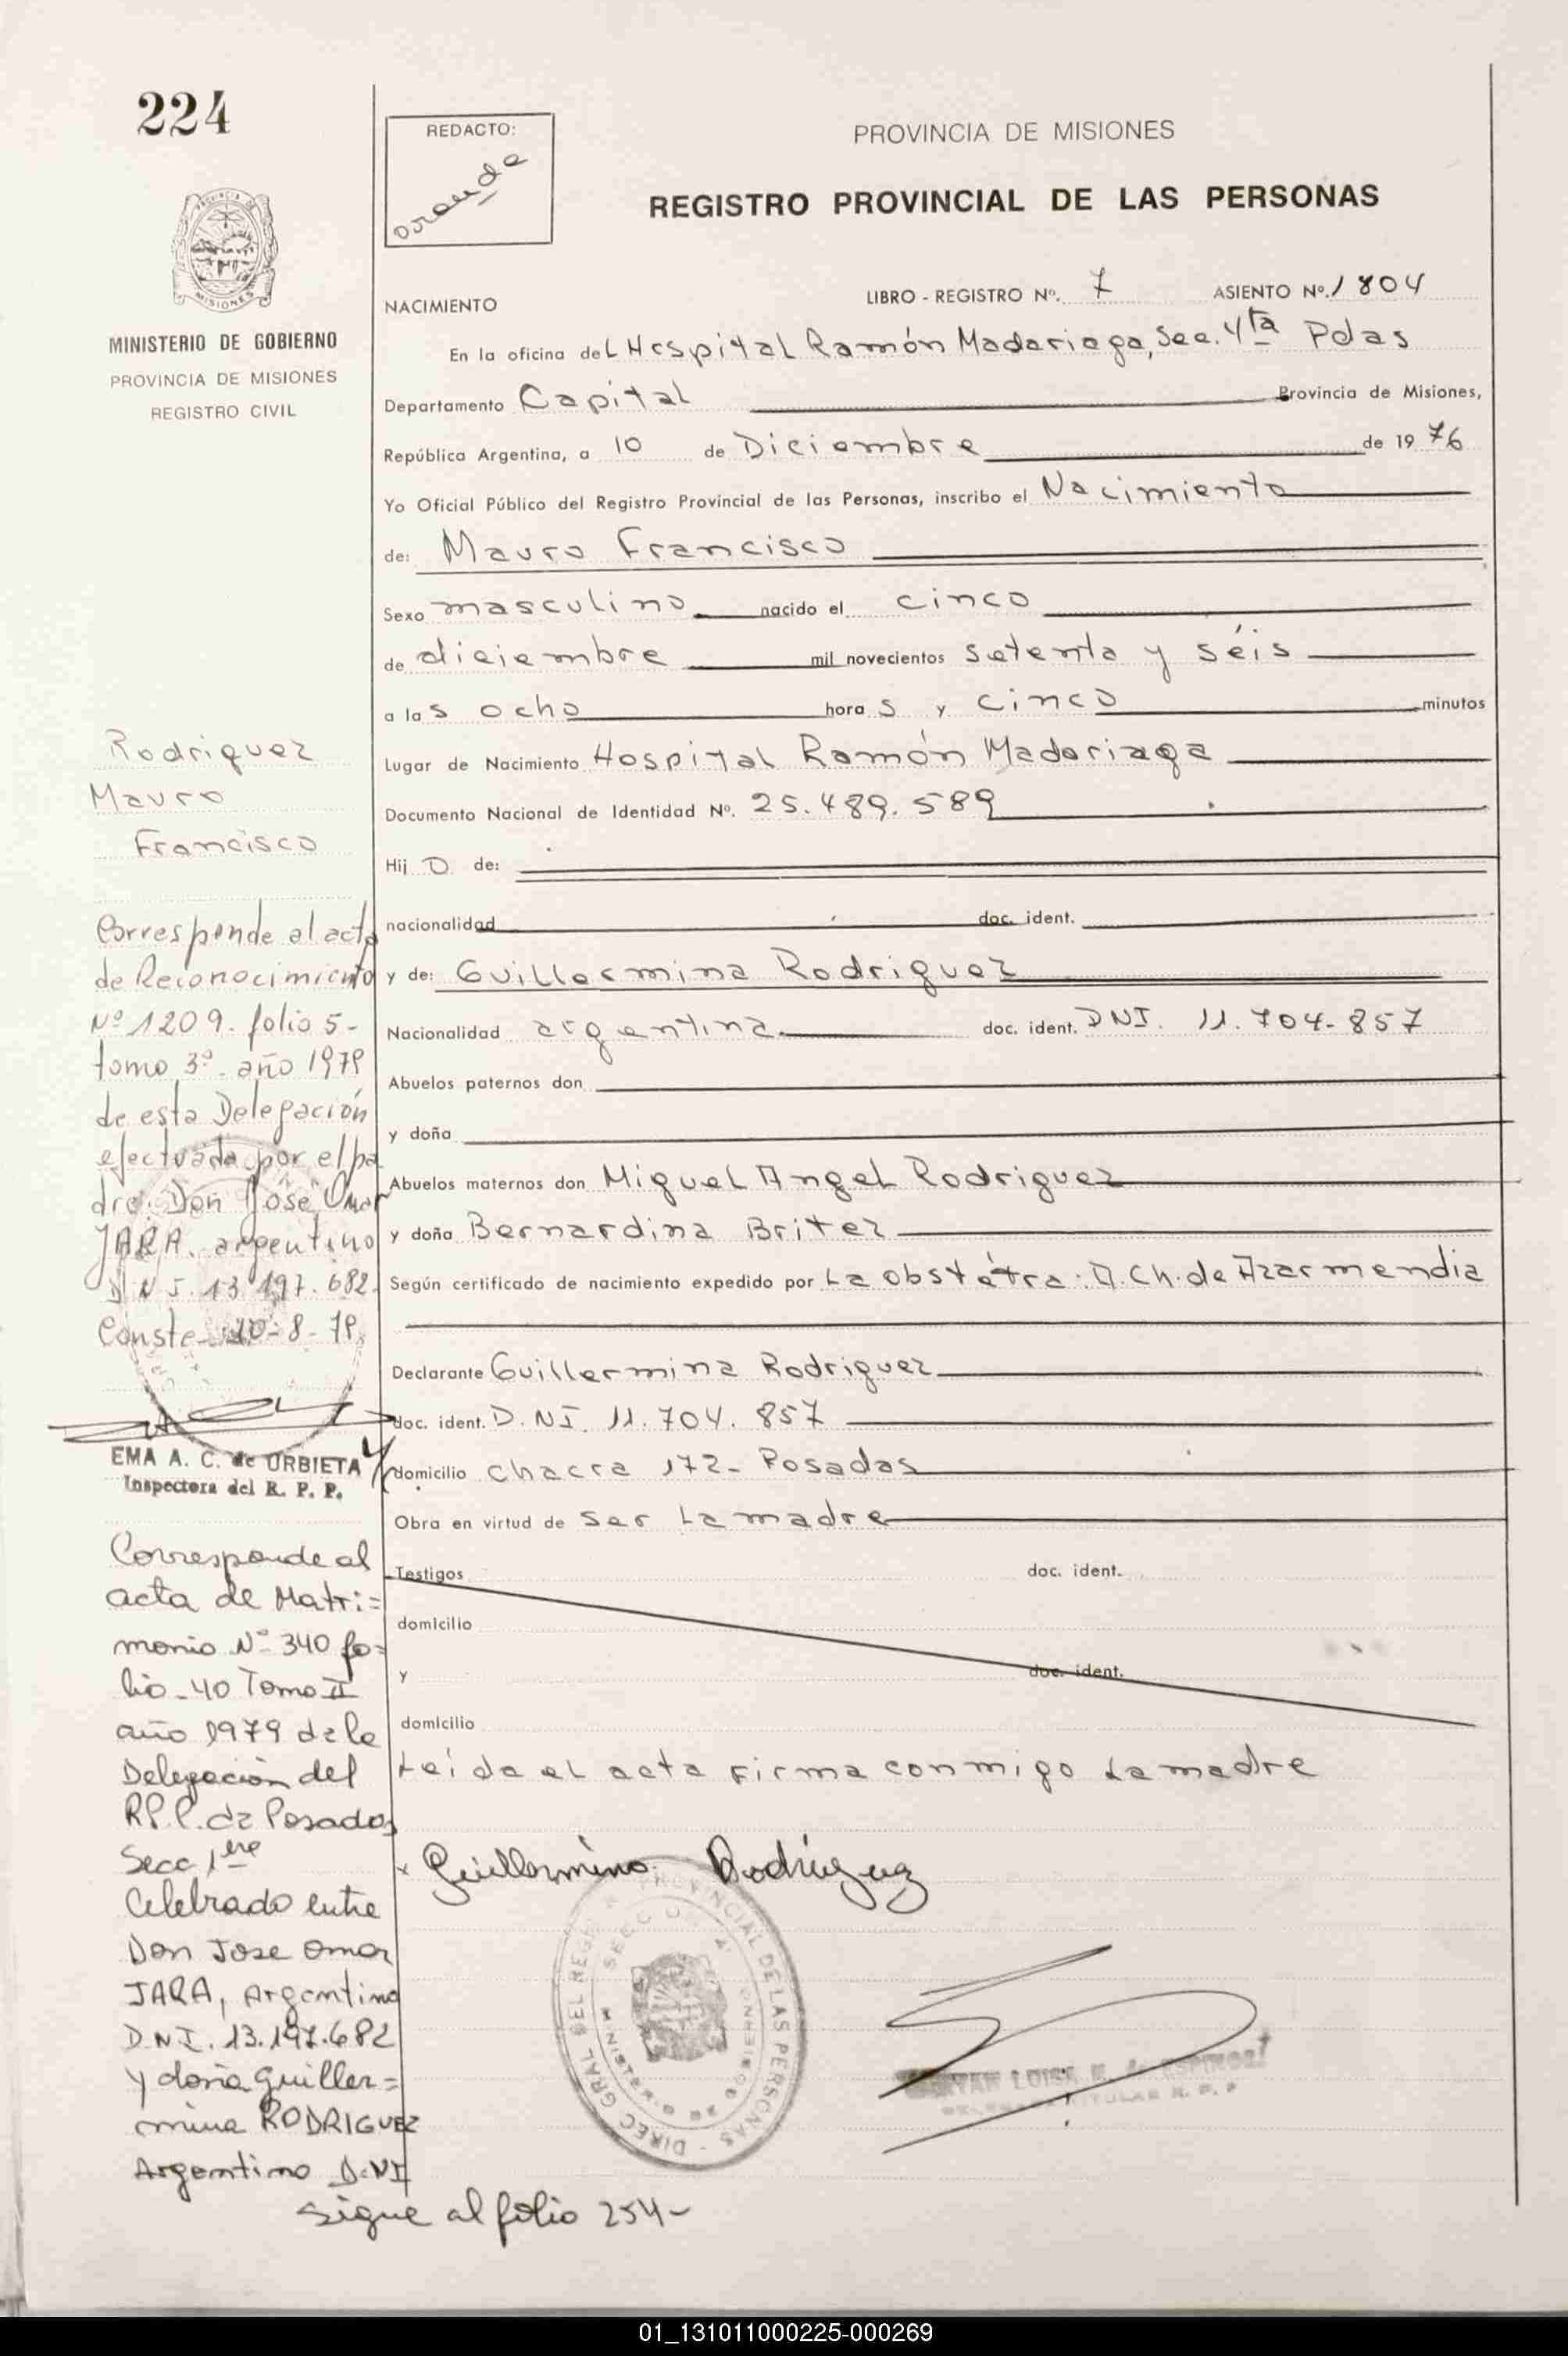 224
REDACTO:
PROVINCIA DE MISIONES
REGISTRO PROVINCIAL DE LAS PERSONAS
MISIONES
MINISTERIO DE GOBIERNO
PROVINCIA DE MISIONES
REGISTRO CIVIL
NACIMIENTO
LIBRO - REGISTRO Nº. 7 ASIENTO Nº. 1804
En la oficina del Hospital Ramón Madariaga, Sec. 4ta Pdas
Departamento Capital Provincia de Misiones,
República Argentina, a 10 de Diciembre de 1976
Yo Oficial Público del Registro Provincial de las Personas, inscribo el Nacimiento
de: Mauro Francisco
Sexo masculino nacido el cinco
de diciembre mil novecientos setenta y séis
a las ocho horas y cinco minutos
Lugar de Nacimiento Hospital Ramón Madariaga
Documento Nacional de Identidad Nº. 25.489.589
Hijo de:
nacionalidad doc. ident.
y de: Guillermina Rodriguez
Nacionalidad argentina doc. ident. DNI. 11.704.857
Abuelos paternos don
y doña
Abuelos maternos don Miguel Angel Rodriguez
y doña Bernardina Britez
Según certificado de nacimiento expedido por La obstétra: A. Ch. de Azarmendia
Declarante Guillermina Rodriguez
doc. ident. D.NI. 11.704.857
domicilio chacra 172- Posadas
Obra en virtud de ser La madre
Testigos doc. ident.
domicilio
y doc. ident.
domicilio
Leída el acta firma conmigo La madre
x Guillermina Rodriguez
Rodriguez
Mauro
Francisco
Corresponde al acta
de Reconocimiento
Nº 1209. folio 5-
tomo 3º. año 1979
de esta Delegación
efectuada por el pa
dre. Don José Omar
JARA. argentino
D N I. 13.197.682.
Conste- 10-8-79.
EMA A. C. de URBIETA
Inspectora del R. P. P.
Corresponde al
acta de Matri=
monio Nº 340 fo=
lio-40 Tomo II
año 1979 de la
Delegación del
R.P.P. de Posadas
Secc 1era
Celebrado entre
Don Jose Omar
JARA, Argentino
D.N.I. 13.197.682
y doña Guiller=
mina RODRIGUEZ
Argentina D.NI
sigue al folio 254-
DIREC GRAL DEL REGISTRO PROVINCIAL DE LAS PERSONAS
MINISTERIO DE GOBIERNO
01_131011000225-000269